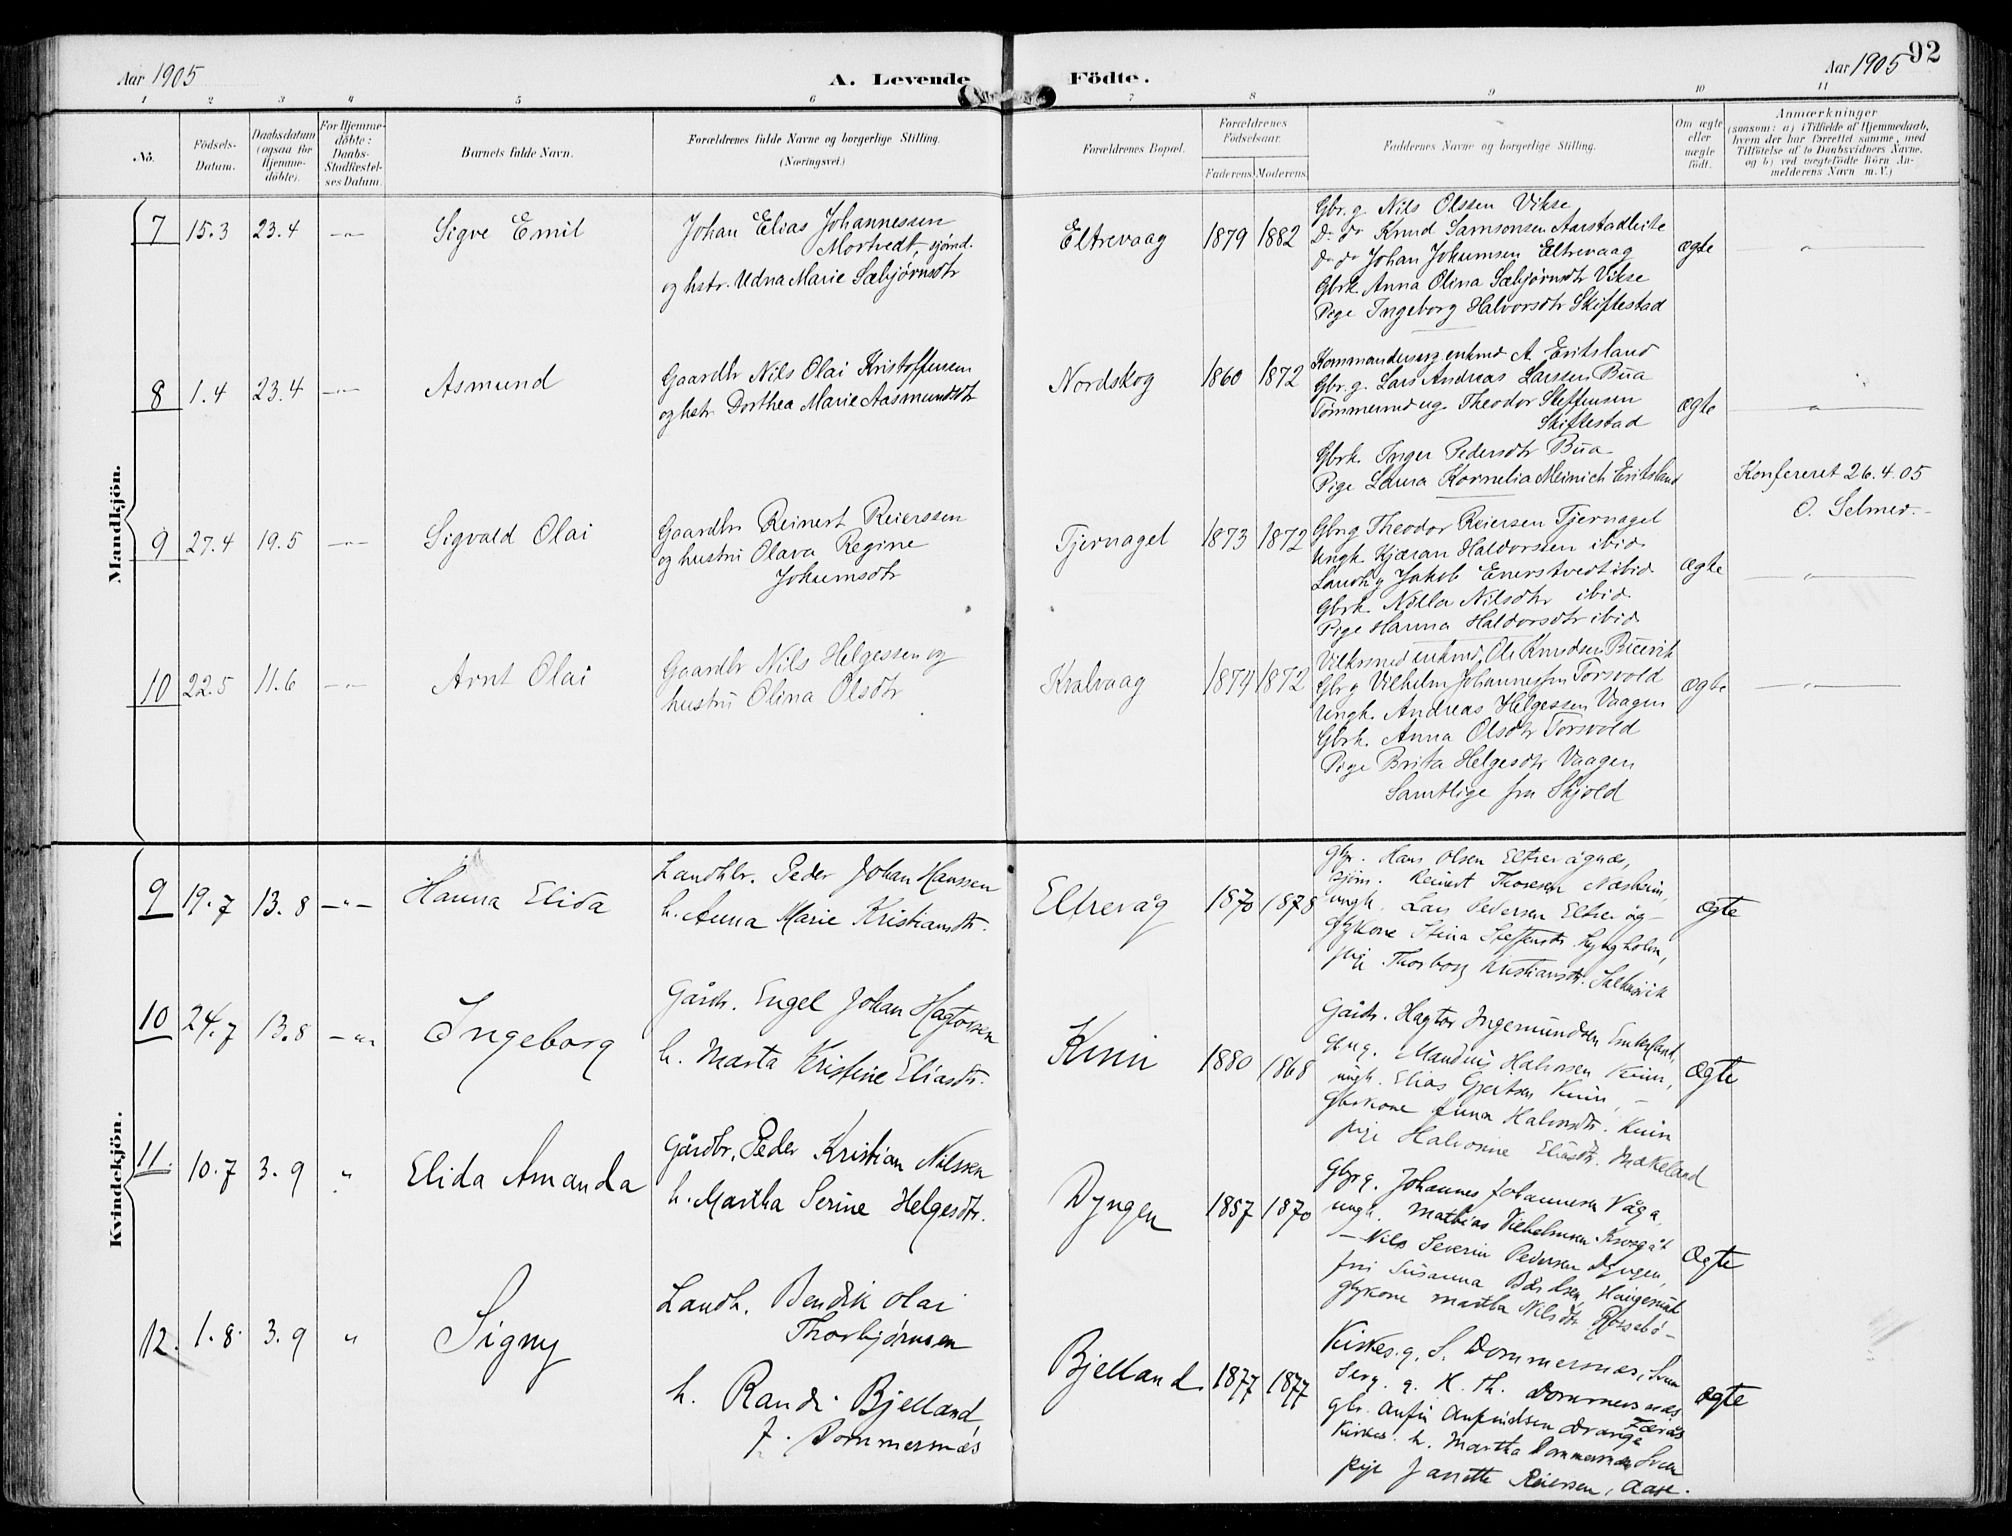 92
Aar 1905
A. Levende Födte.
Aar 1905
1 2 3 4 5 6 7 8 9 10 11
No.
Födsels-Datum.
Daabsdatum (ogsaa for Hjemme-döbte).
For Hjemme-döbte: Daabs-Stadfæstel-ses Datum.
Barnets fulde Navn.
Forældrenes fulde Navne og borgerlige Stilling.
(Næringsvei.)
Forældrenes Bopæl.
Forældrenes Födselsaar.
Faderens Moderens
Faddernes Navne og borgerlige Stilling.
Om ægte eller uægte födt.
Anmærkninger
(saasom: a) i Tilfælde af Hjemmedaab,
hvem der har forrettet samme, med
Tilföielse af to Daabsvidners Navne,
og b) ved uægtefödte Börn An-
melderens Navn m. V.)
Mandkjön.
7 15.3 23.4 -"- Sigve Emil
Johan Elias Johannessen
Mortvedt, sjömd.
og hstr. Udna Marie Sæbjørnsdtr
Eltrevaag 1879 1882
Gbr. g. Nils Olssen Vikse
Do do Knud Samsonsen Aarstadleite
Do do Johan Johumsen Eltrevaag
Gbrk Anna Olina Sæbjørnsdtr Vikse
Pige Ingeborg Halvorsdtr Skiftestad
ægte "
8 1.4 23.4 -"- Asmund
Gaardbr Nils Olai Kristoffersen
og hstr Dorthea Marie Aasmundsdtr
Nordskog 1860 1872
enkmd A. Eritsland
Gbr. g. Lars Andreas Larssen Bua
Tømmermd ug Theodor Steffensen
Skiftestad
Gbrk. Inger Pedersdtr Bua
Pige Laura Kornelia Meinich Eritsland
ægte "
Konfereret 26.4.05
O. Selmer.
9 27.4 19.5 -"- Sigvald Olai
Gaardbr Reinert Reierssen
og hustru Olava Regine
Johumsdtr
Tjernagel 1873 1872
Gbrg Theodor Reiersen Tjernagel
Ungk. Kjæran Haldorssen ibid
Landh g Jakob Enerstvedt ibid
Gbrk. Nilla Nilsdtr ibid
Pige Hanna Haldorsdtr ibid
ægte "
10 22.5 11.6 -"- Arnt Olai
Gaardbr Nils Helgessen og
hustru Olina Olsdtr
Kralvaag 1874 1872
enkmd Ole Knudsen
Gbr g Vilhelm Johannessen Torsvold
Ungk. Andreas Helgessen Vaagen
Gbrk. Anna Olsdtr Torsvold
Pige Brita Helgesdtr Vaagen
Samtlige fra Skjold
ægte "
Kvindekjön.
9 19.7 13.8 -"- Hanna Elida
Landhbr. Peder Johan Hanssen
h. Anna Marie Kristiansdtr.
Eltrevåg 1870 1878
gbr. Hans Olsen Eltrevågnæs,
sjøm. Reinert Thoresen Næsheim,
ungk. Lars Pedersen Eltrevåg -
gbrkone Stina Steffensdtr. Lyngholm,
pige Thorborg Kristiansdtr.
ægte
10 24.7 13.8 -"- Ingeborg
Gårdr. Engel Johan Hagtorsen
h. Marta Kristine Eliasdtr.
Kuin 1880 1868
Gårdr. Hagtor Ingemundsen
gbr g. Mandius Halvorsen Kuin,
ungk. Elias Gjertsen Kuin, -
gbrkone Anna Halvorsdtr. Kuin
pige Halvorine Eliasdtr. Mækeland
ægte
11. 10.7 3.9 " Elida Amanda
Gårdbr. Peder Kristian Nilssen
h. Martha Serine Helgesdtr.
Dyngen 1857 1870
Gbr g. Johannes Johannesen Våga,
ungk. Mathias Vilhelmsen
- Nils Severin Pedersen Dyngen,
fru Susanna Haugesund
gbrkone Martha Nilsdtr
ægte
12. 1.8. 3.9 " Signy
Landh. Bendik Olai
Thorbjørnsen
h. Randi Bjelland
f. Dommersnæs
Bjelland 1877 1877
Kirkes. g. S. Dommersnæs, Sveen
Serg. g. K. Th. Dommersnæs
gbr. Anfin Anfindsen Drange
Kirkes. h. Martha Dommersnæs Sveen
pige Janette Reiersen, Aase.
ægte